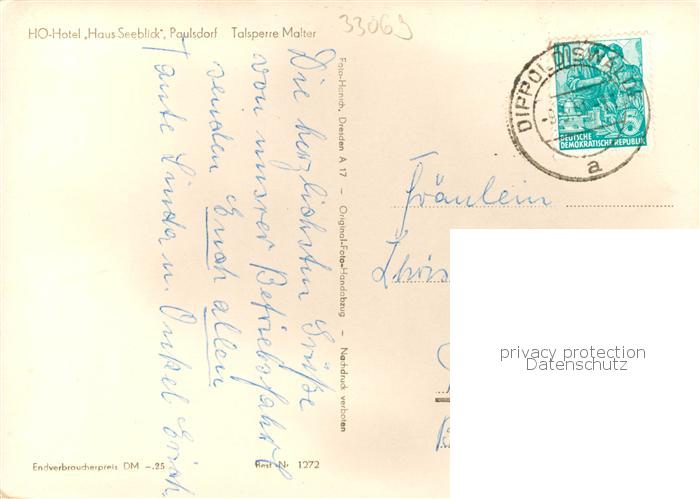 HO-Hotel „Haus Seeblick", Paulsdorf Talsperre Malter
33069
Die herzlichsten Grüße
von unsrer Betriebsfahrt
senden Euch allen
Tante Linda u. Onkel Erich.
Foto-Hanich, Dresden A 17 – Original-Foto-Handabzug – Nachdruck verboten
DIPPOLDISWALDE
a
DEUTSCHE
DEMOKRATISCHE REPUBLIK
5
Fräulein
privacy protection
Datenschutz
Endverbraucherpreis DM –.25
Best.-Nr. 1272